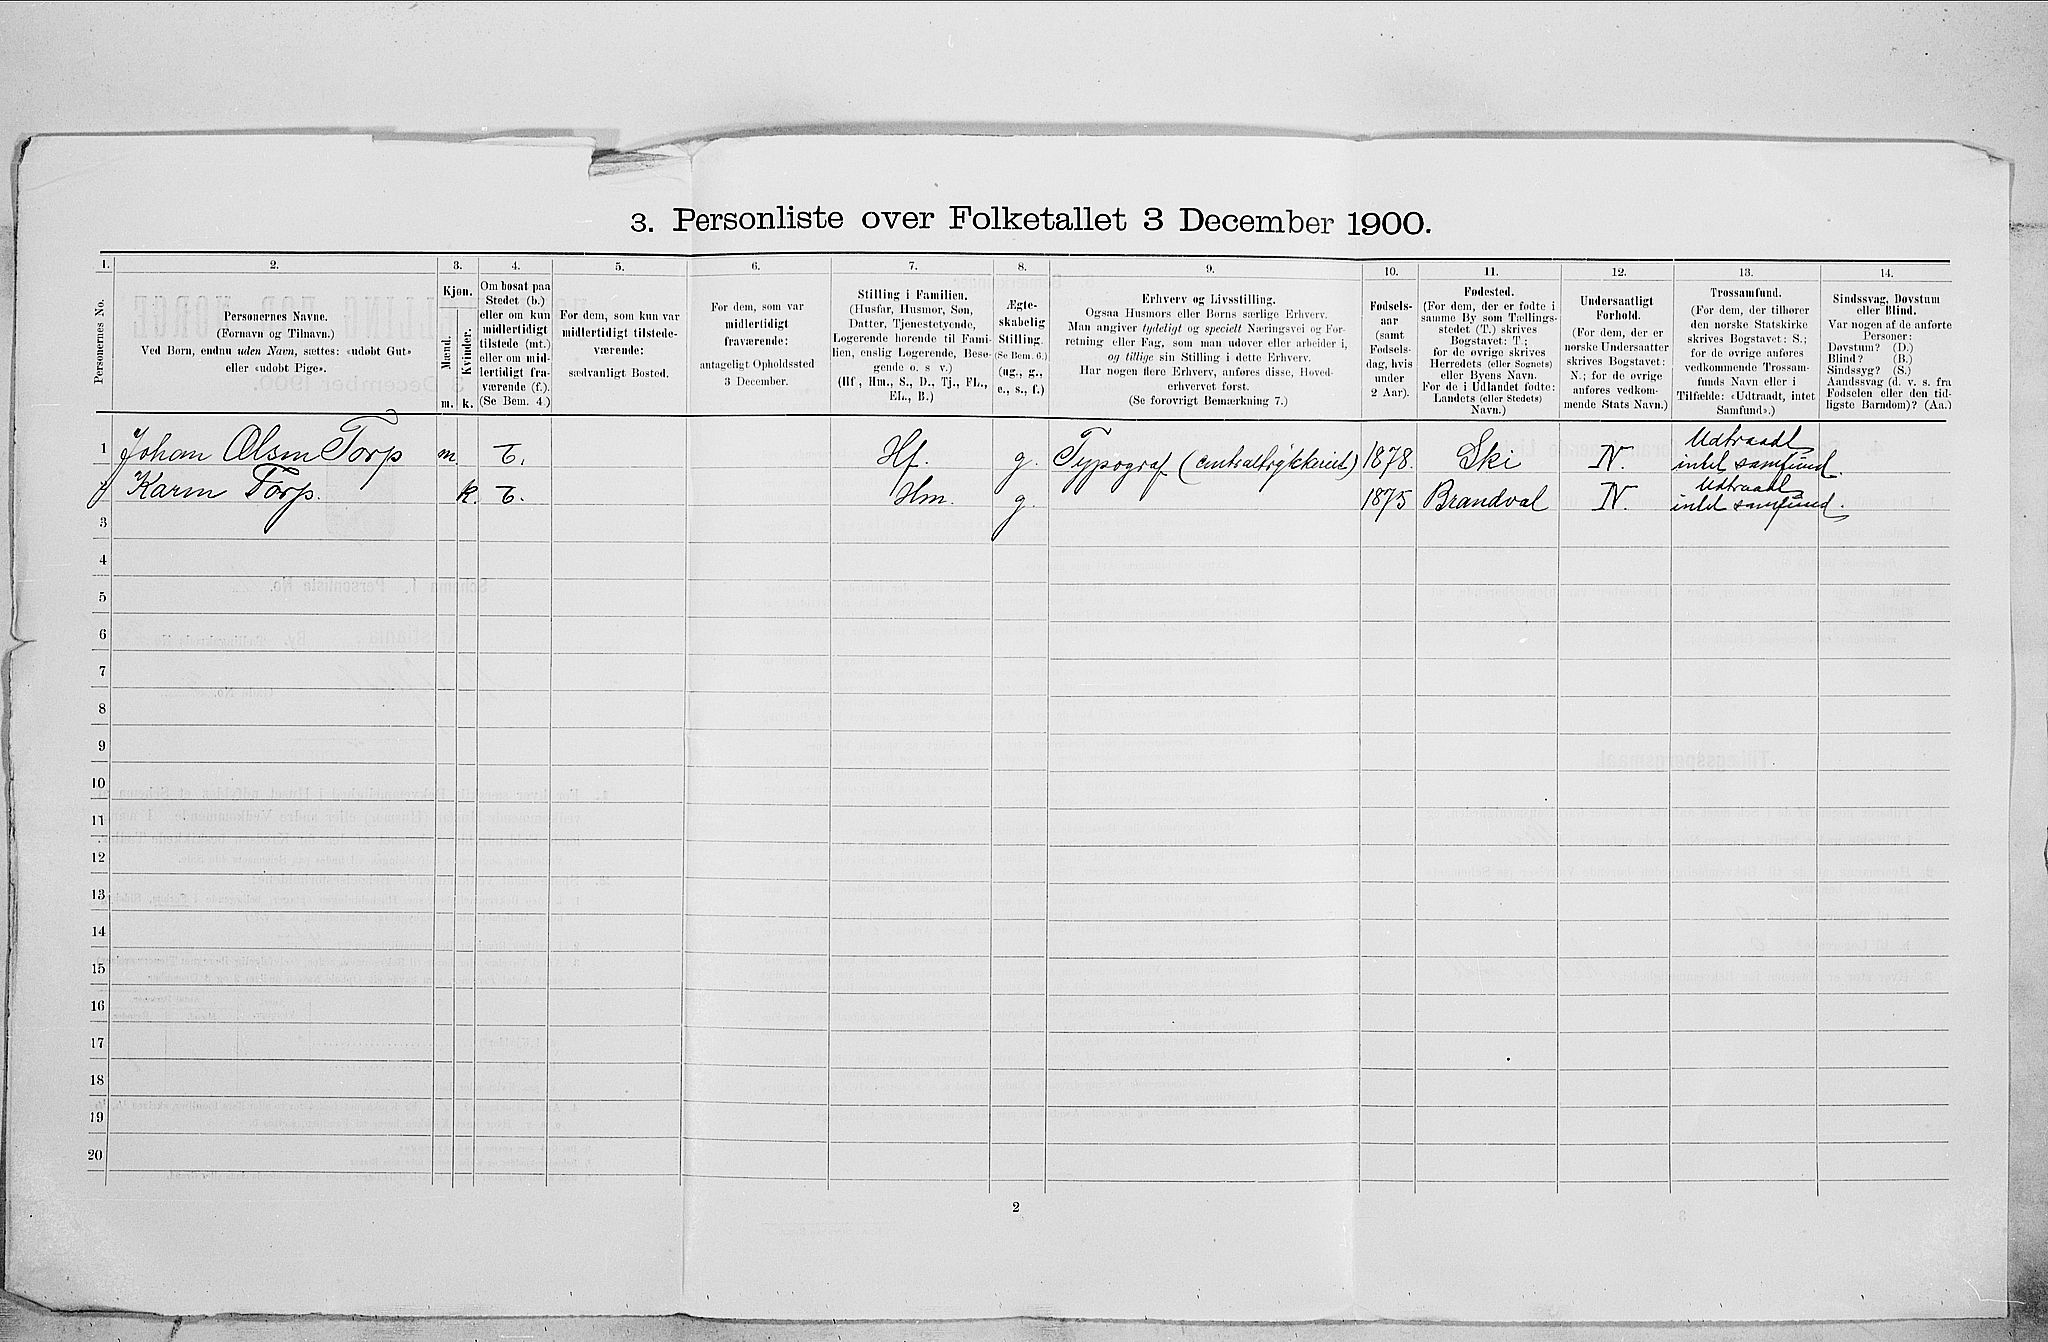 3. Personliste over Folketallet 3 December 1900.
1. 2. 3. 4. 5. 6. 7. 8. 9. 10. 11. 12. 13. 14.
Personernes No.
Personernes Navne.
(Fornavn og Tilnavn.)
Ved Børn, endnu uden Navn, sættes: «udobt Gut»
eller «udobt Pige».
Kjøn.
Mænd.
Kvinder.
m. k.
Om bosat paa
Stedet (b.)
eller om kun
midlertidigt
tilstede (mt.)
eller om mid-
lertidigt fra-
værende (f.).
(Se Bem. 4.)
For dem, som kun var
midlertidigt tilstede-
værende:
sædvanligt Bosted.
For dem, som var
midlertidigt
fraværende:
antageligt Opholdssted
3 December.
Stilling i Familien.
(Husfar, Husmor, Søn,
Datter, Tjenestetyende,
Logerende hørende til Fami-
lien, enslig Logerende, Besø-
gende o. s v.)
(Hf, Hm., S., D., Tj., FL.,
EL., B.)
Ægte-
skabelig
Stilling.
(Se Bem. 6.)
(ug., g.,
e., s., f.)
Erhverv og Livsstilling.
Ogsaa Husmors eller Børns særlige Erhverv.
Man angiver tydeligt og specielt Næringsvei og For-
retning eller Fag, som man udøver eller arbeider i,
og tillige sin Stilling i dette Erhverv.
Har nogen flere Erhverv, anføres disse, Hoved-
erhvervet først.
(Se forøvrigt Bemærkning 7.)
Fødsels-
aar
(samt
Fødsels-
dag, hvis
under
2 Aar).
Fødested.
(For dem, der er fødte i
samme By som Tællings-
stedet (T.) skrives
Bogstavet: T.;
for de øvrige skrives
Herredets (eller Sognets)
eller Byens Navn.
For de i Udlandet fødte:
Landets (eller Stedets)
Navn.)
Undersaatligt
Forhold.
(For dem, der er
norske Undersaatter
skrives Bogstavet:
N.; for de øvrige
anføres vedkom-
mende Stats Navn.)
Trossamfund.
(For dem, der tilhører
den norske Statskirke
skrives Bogstavet: S.;
for de øvrige anføres
vedkommende Trossam-
funds Navn eller i
Tilfælde: «Udtraadt, intet
Samfund».)
Sindssvag, Døvstum
eller Blind.
Var nogen af de anførte
Personer:
Døvstum? (D.)
Blind? (B.)
Sindssyg? (S.)
Aandssvag (d. v. s. fra
Fødselen eller den tid-
ligste Barndom)? (Aa.)
1 Johan Olsen Torp m. b. Hf. g. Typograf (centraltrykkeriet) 1878. Ski N. Udtraadt
intet samfund.
2 Karen Torp. k. b. Hm. g. 1875 Brandval N. Udtraadt
intet samfund.
3
4
5
6
7
8
9
10
11
12
13
14
15
16
17
18
19
20
2